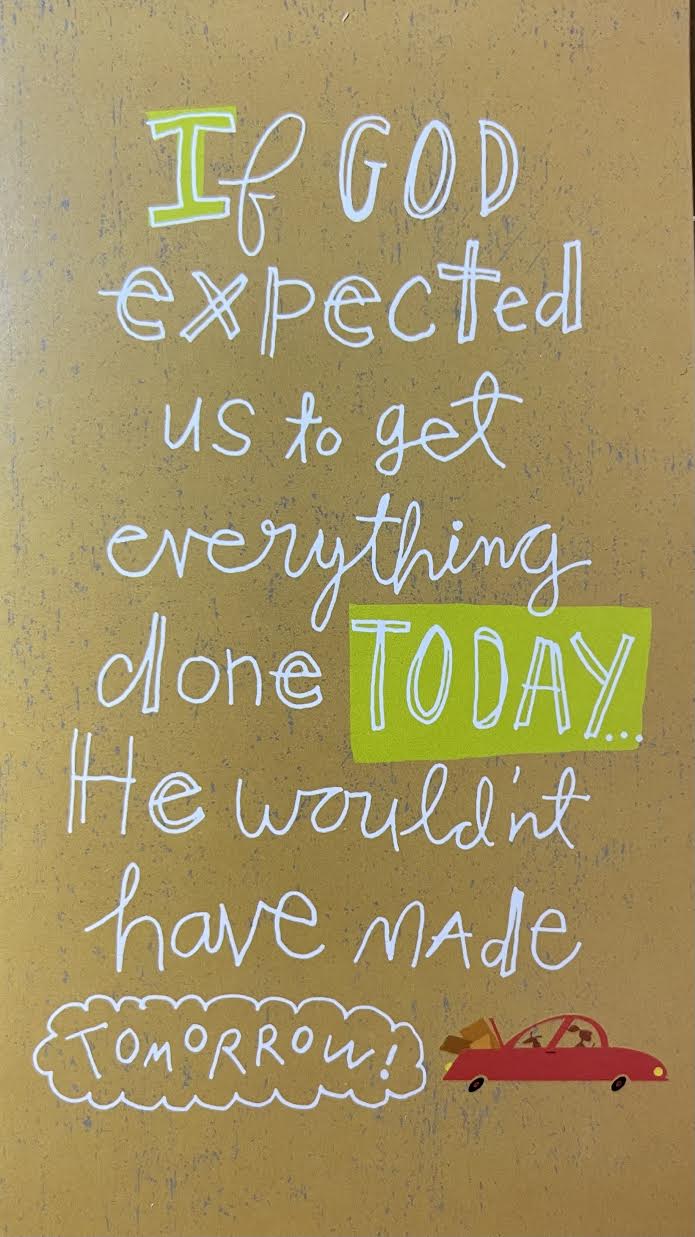 If GOD
expected
us to get
everything
done TODAY...
He would'nt
have MAde
TOMORROW!